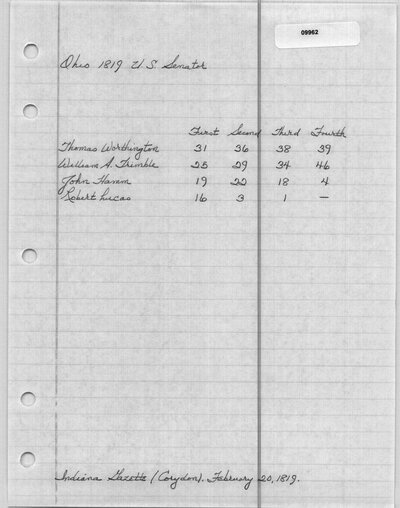 09962
Ohio 1819 U.S. Senator
First Second Third Fourth
Thomas Worthington 31 36 38 39
William A. Trimble 25 29 34 46
John Hamm 19 22 18 4
Robert Lucas 16 3 1 —
Indiana Gazette (Corydon). February 20, 1819.